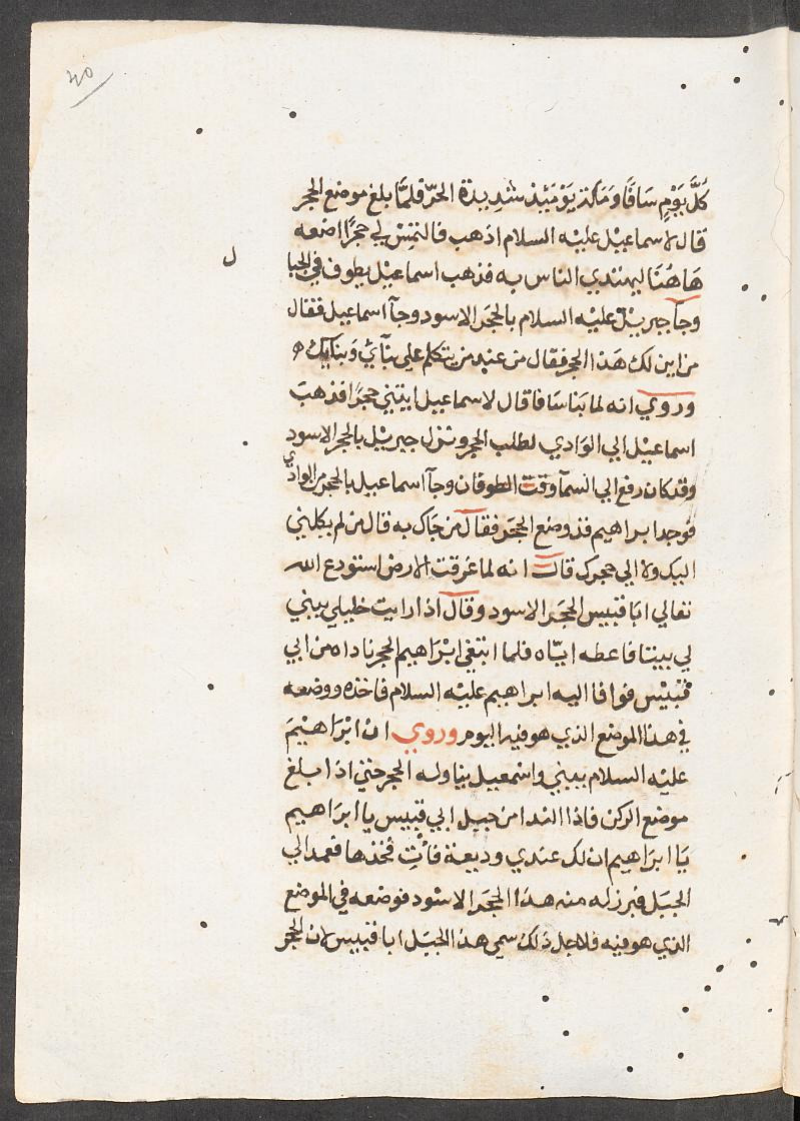 40
كُلَّ يَوْمٍ سَافًا وَمَكة يَوْمَئِذ شَدِيدة الحرّ فلمَّا بلغ موضع الحجر
قال لاسماعيْل عليْه السلام اذهب فالتمِسْ لي حجرًا اضعه
هَا هُنَا ليهتدي الناس به فذهب اسماعيْل يطوف في الجبا
ل
وجآ جبريْل عليْه السلام بالحجَر الاسود وجآ اسماعيل فقال
من اين لك هَذا الحجر فقال من عند من يتكلم على بنآئ وَبنايك ه
وروي انه لما بَنا سَافا قال لاسماعيل ايتني حجرًا فذهبَ
اسماعيْل الي الوَادي لطلب الحجر ونزل جبريْل بالحجر الاسود
وقد كان رفع الي السمآ وقت الطوفان وجآ اسماعيل بالحجر من الوادي
فوجد ابراهيم قد وضع الحجَر فقال من جَاك به قال من لم يكلني
اليك ولا الي حجرك قال انه لما غرقت الارض استودع الله
تعالي ابَا قبيس الحجَر الاسود وقال اذا رايت خليلي يبني
لي بيتا فاعطه ايّاه فلما ابتغي ابْرَاهيم الحجر ناداه من ابي
قُبَيْس فوافا اليه ابراهيم عليْه السلام فاخذه ووضعه
في هذا الموضع الذي هو فيه اليوم وروي ان ابْرَاهيْمَ
عليْه السلام يبني واسْمعيل يناوله الحجر حتي اذا بلغ
موضع الركن فاذا الندا من جبل ابي قبيس يا ابرَاهيم
يَا ابرَاهيم ان لك عندي وديعة فأْتِ فخذها فعمد الي
الجبَل فبرز له منه هذا الحجَر الاسْود فوضعه في الموضع
الذي هو فيْه فلاجل ذلك سمي هذا الجبَل ابا قبيس لان الحجر